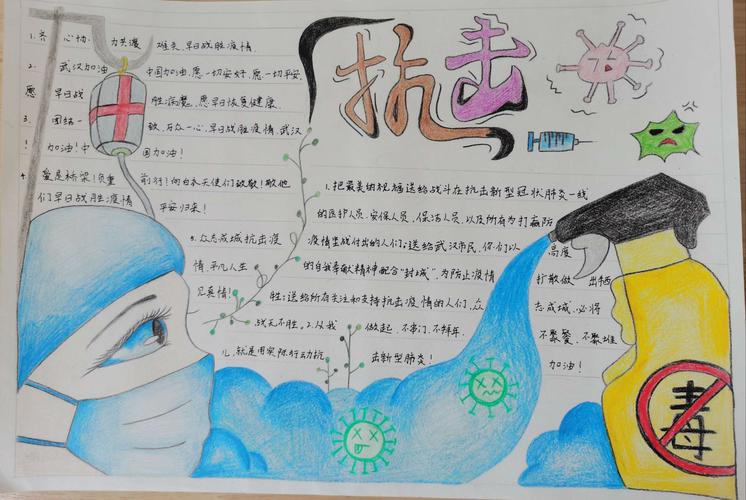 抗击
1.齐心协力共渡难关，早日战胜疫情.
2. 武汉加油 中国加油，愿一切安好，愿一切平安，
愿 早日战胜病魔，愿早日恢复健康.
3. 团结一致，万众一心，早日战胜疫情，武汉
！加油！中国加油！
4. 爱是桥梁！负重前行！向白衣天使们致敬！敬他
们早日战胜疫情 平安归来！
5.众志成城抗击疫
情，平凡人生
见真情！
1.把最美的祝福送给战斗在抗击新型冠状肺炎一线
的医护人员，安保人员，保洁人员，以及所有为打赢防
疫情坚战付出的人们；送给武汉市民，你们以 高度
的自我奉献精神配合“封城”，为防止疫情 扩散做 出牺
胜；送给所有关注和支持抗击疫情的人们，众 志成城，必将
战无不胜。2.从我 做起，不串门，不拜年， 不聚餐，不聚堆
儿，就是用实际行动抗 击新型肺炎！ 加油！
毒